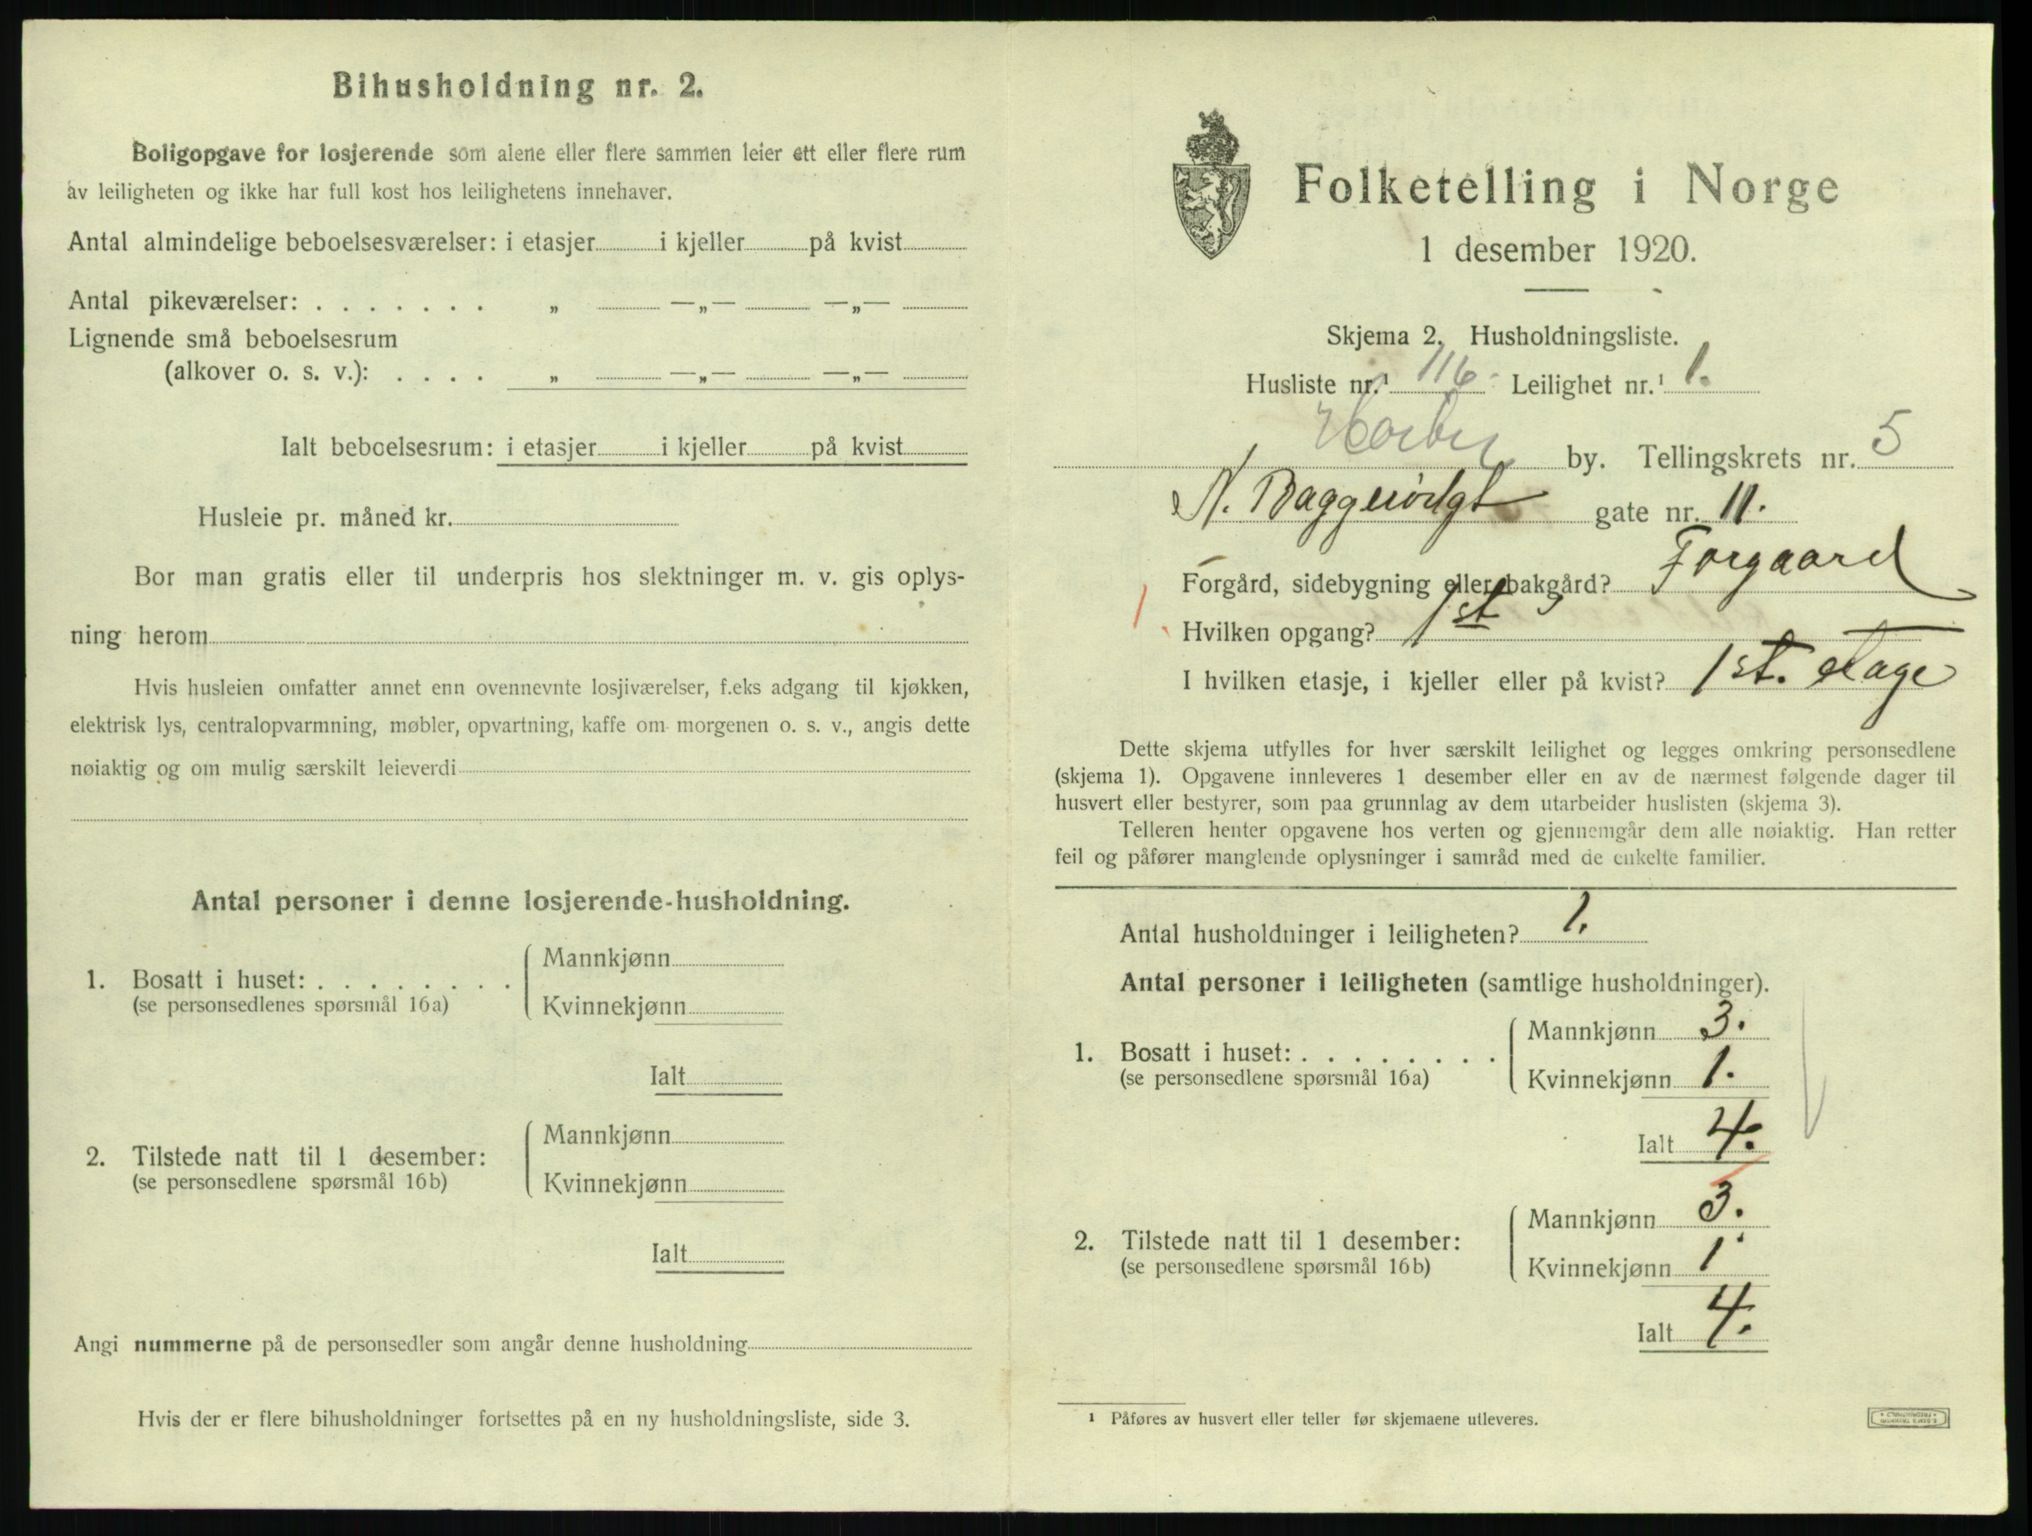 Bihusholdning nr. 2.
Boligopgave for losjerende som alene eller flere sammen leier ett eller flere rum
av leiligheten og ikke har full kost hos leilighetens innehaver.
Antal almindelige beboelsesværelser: i etasjer i kjeller på kvist
Antal pikeværelser: . . . . . . . „ —„— —„—
Lignende små beboelsesrum
(alkover o. s. v.): . . . . „ —„— —„—
Ialt beboelsesrum: i etasjer i kjeller på kvist
Husleie pr. måned kr.
Bor man gratis eller til underpris hos slektninger m. v. gis oplys-
ning herom
Hvis husleien omfatter annet enn ovennevnte losjiværelser, f.eks adgang til kjøkken,
elektrisk lys, centralopvarmning, møbler, opvartning, kaffe om morgenen o. s. v., angis dette
nøiaktig og om mulig særskilt leieverdi
Antal personer i denne losjerende-husholdning.
1. Bosatt i huset: . . . . . . . .
(se personsedlenes spørsmål 16a)
Mannkjønn
Kvinnekjønn
Ialt
2. Tilstede natt til 1 desember:
(se personsedlene spørsmål 16b)
Mannkjønn
Kvinnekjønn
Ialt
Angi nummerne på de personsedler som angår denne husholdning
Hvis der er flere bihusholdninger fortsettes på en ny husholdningsliste, side 3.
Folketelling i Norge
1 desember 1920.
Skjema 2. Husholdningsliste.
Husliste nr.¹ 116 Leilighet nr.¹ 1.
by. Tellingskrets nr. 5
gate nr. 11.
Forgård, sidebygning eller bakgård? Forgaard
1 Hvilken opgang? 1st
I hvilken etasje, i kjeller eller på kvist? 1st. etage
Dette skjema utfylles for hver særskilt leilighet og legges omkring personsedlene
(skjema 1). Opgavene innleveres 1 desember eller en av de nærmest følgende dager til
husvert eller bestyrer, som paa grunnlag av dem utarbeider huslisten (skjema 3).
Telleren henter opgavene hos verten og gjennemgår dem alle nøiaktig. Han retter
feil og påfører manglende oplysninger i samråd med de enkelte familier.
Antal husholdninger i leiligheten? 1.
Antal personer i leiligheten (samtlige husholdninger).
1. Bosatt i huset: . . . . . . . .
(se personsedlene spørsmål 16a)
Mannkjønn 3.
Kvinnekjønn 1.
Ialt 4.
2. Tilstede natt til 1 desember:
(se personsedlene spørsmål 16b)
Mannkjønn 3.
Kvinnekjønn 1
Ialt 4.
¹ Påføres av husvert eller teller før skjemaene utleveres.